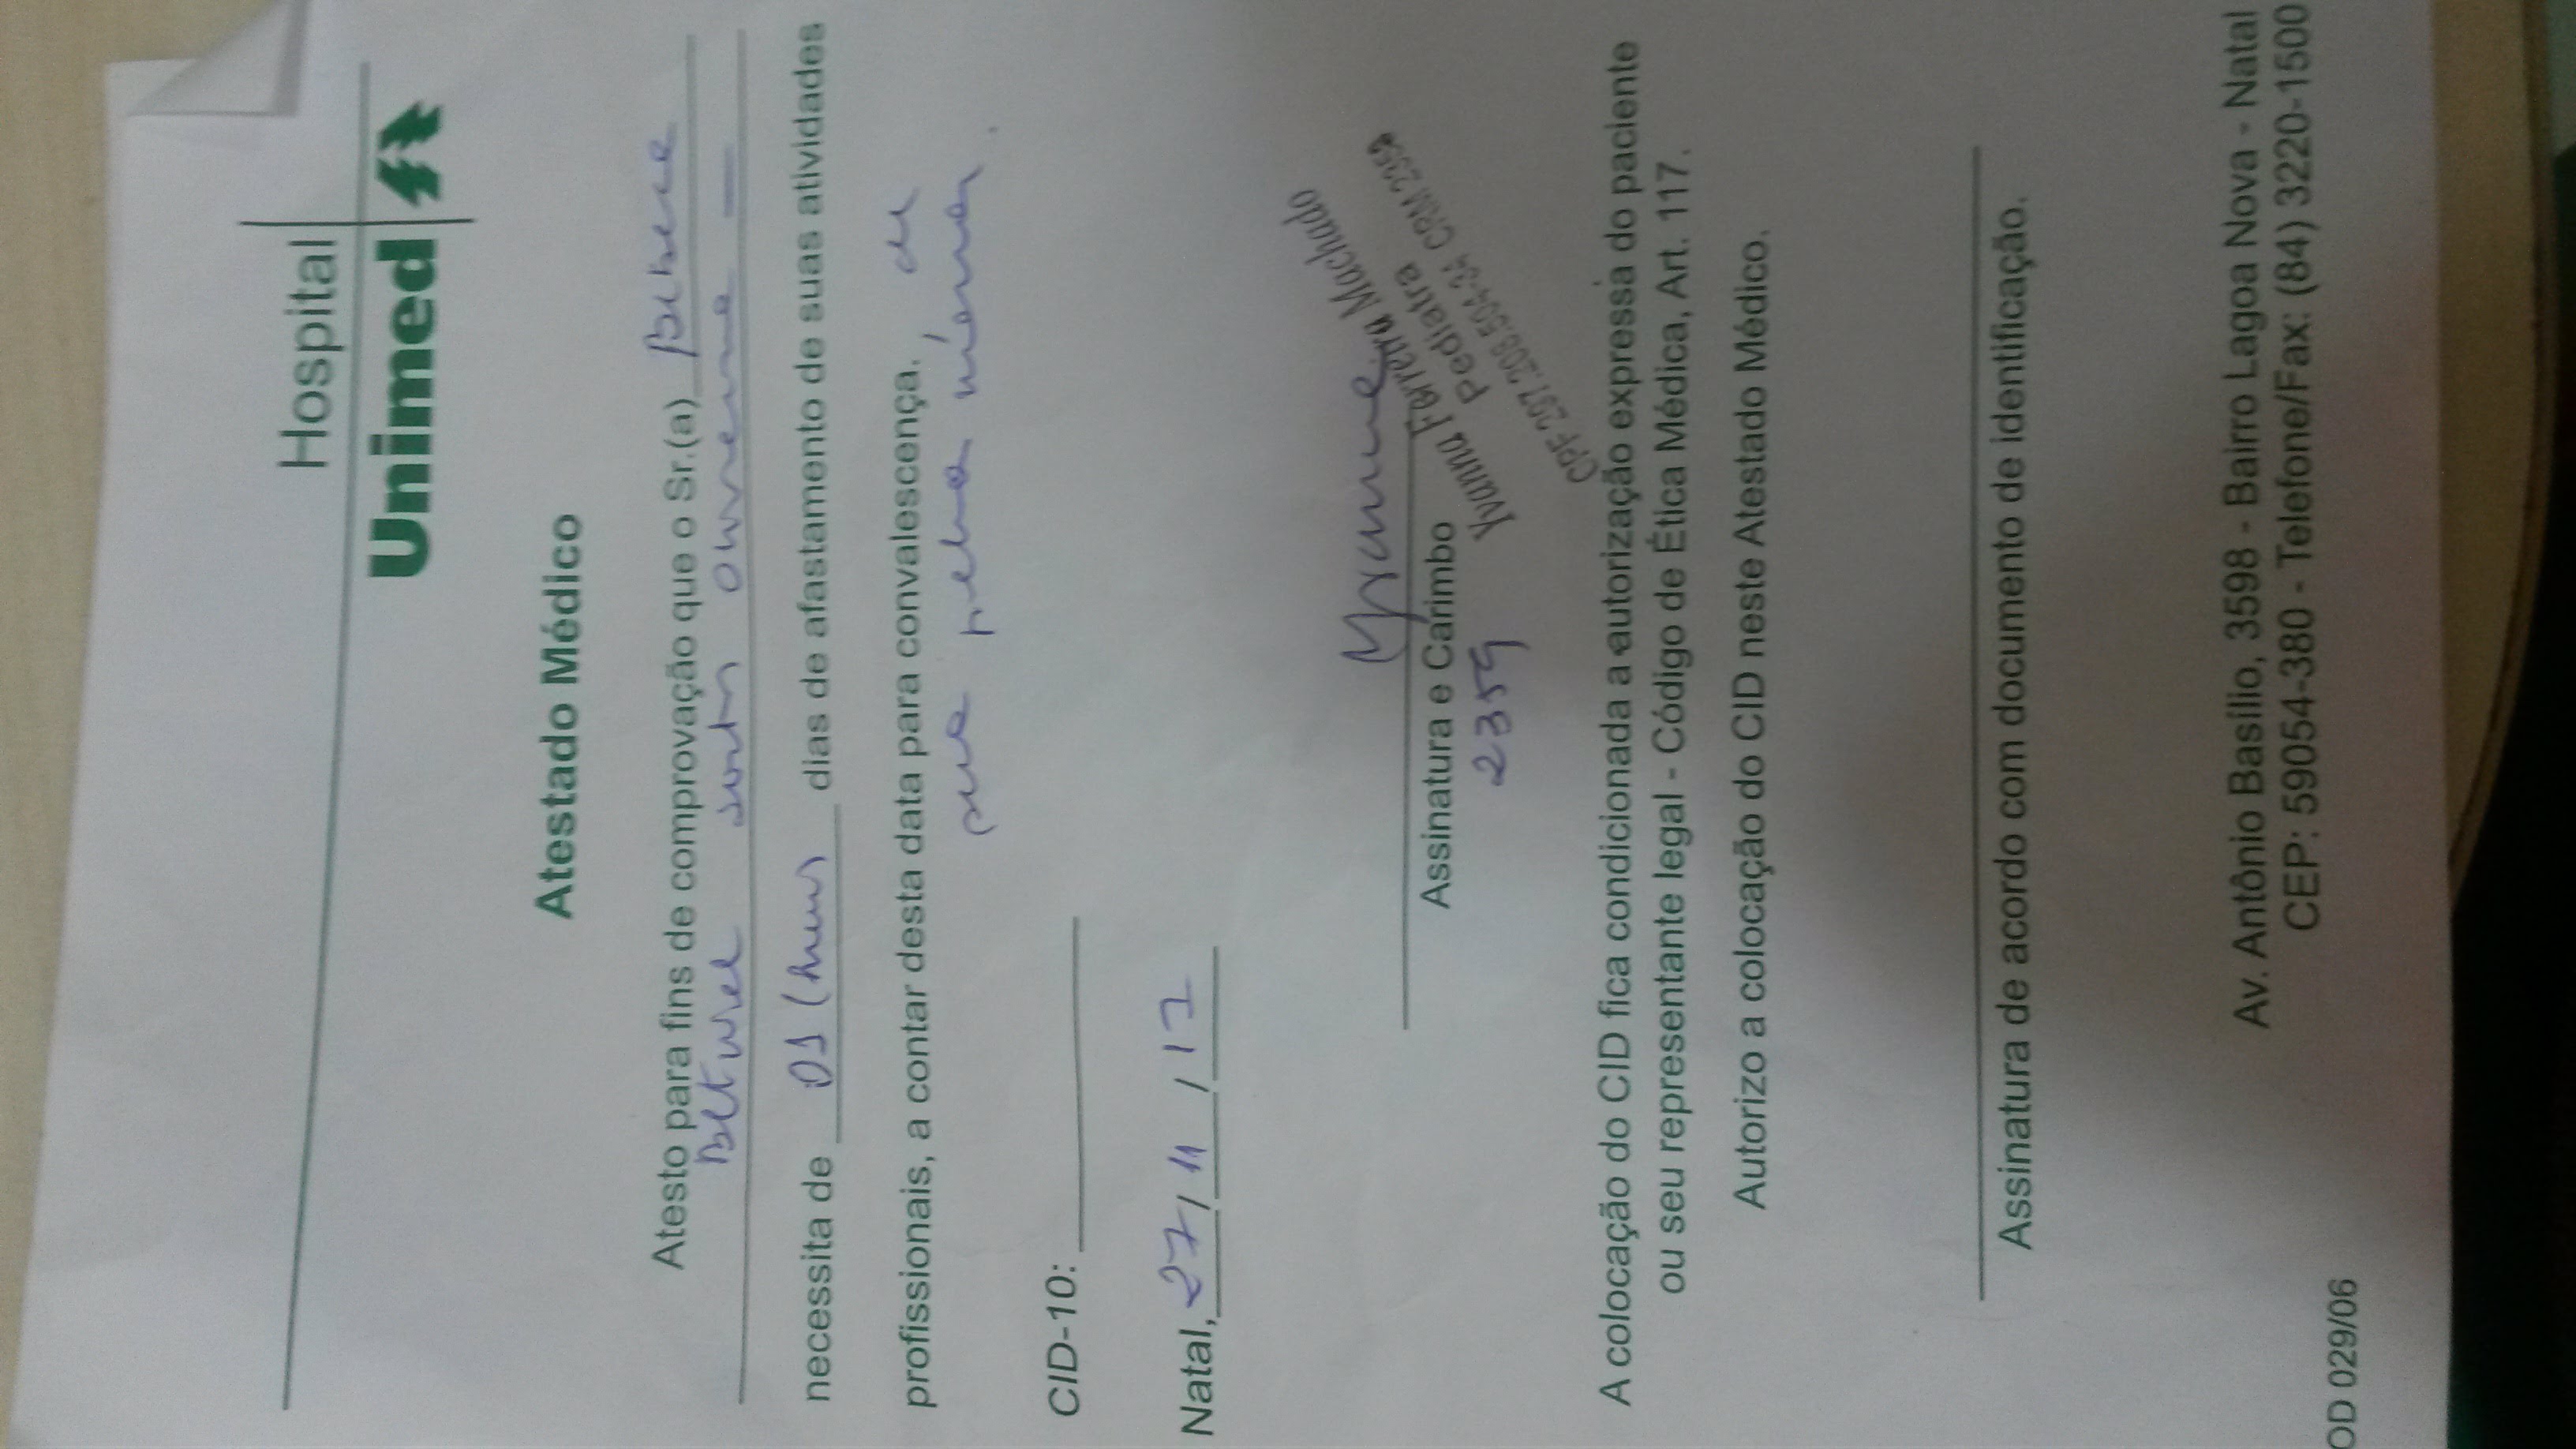 Hospital
Unimed
Atestado Médico
Atesto para fins de comprovação que o Sr.(a)
necessita de 01 dias de afastamento de suas atividades
profissionais, a contar desta data para convalescença. , de
sua
CID-10:
Natal, 27/11/17
Yvanna Ferreira Machado
Pediatra
CPF 297.208.504-34 CRM 2359
Assinatura e Carimbo
2359
A colocação do CID fica condicionada a autorização expressa do paciente
ou seu representante legal - Código de Ética Médica, Art. 117.
Autorizo a colocação do CID neste Atestado Médico.
Assinatura de acordo com documento de identificação.
Av. Antônio Basílio, 3598 - Bairro Lagoa Nova - Natal
CEP: 59054-380 - Telefone/Fax: (84) 3220-1500
OD 029/06